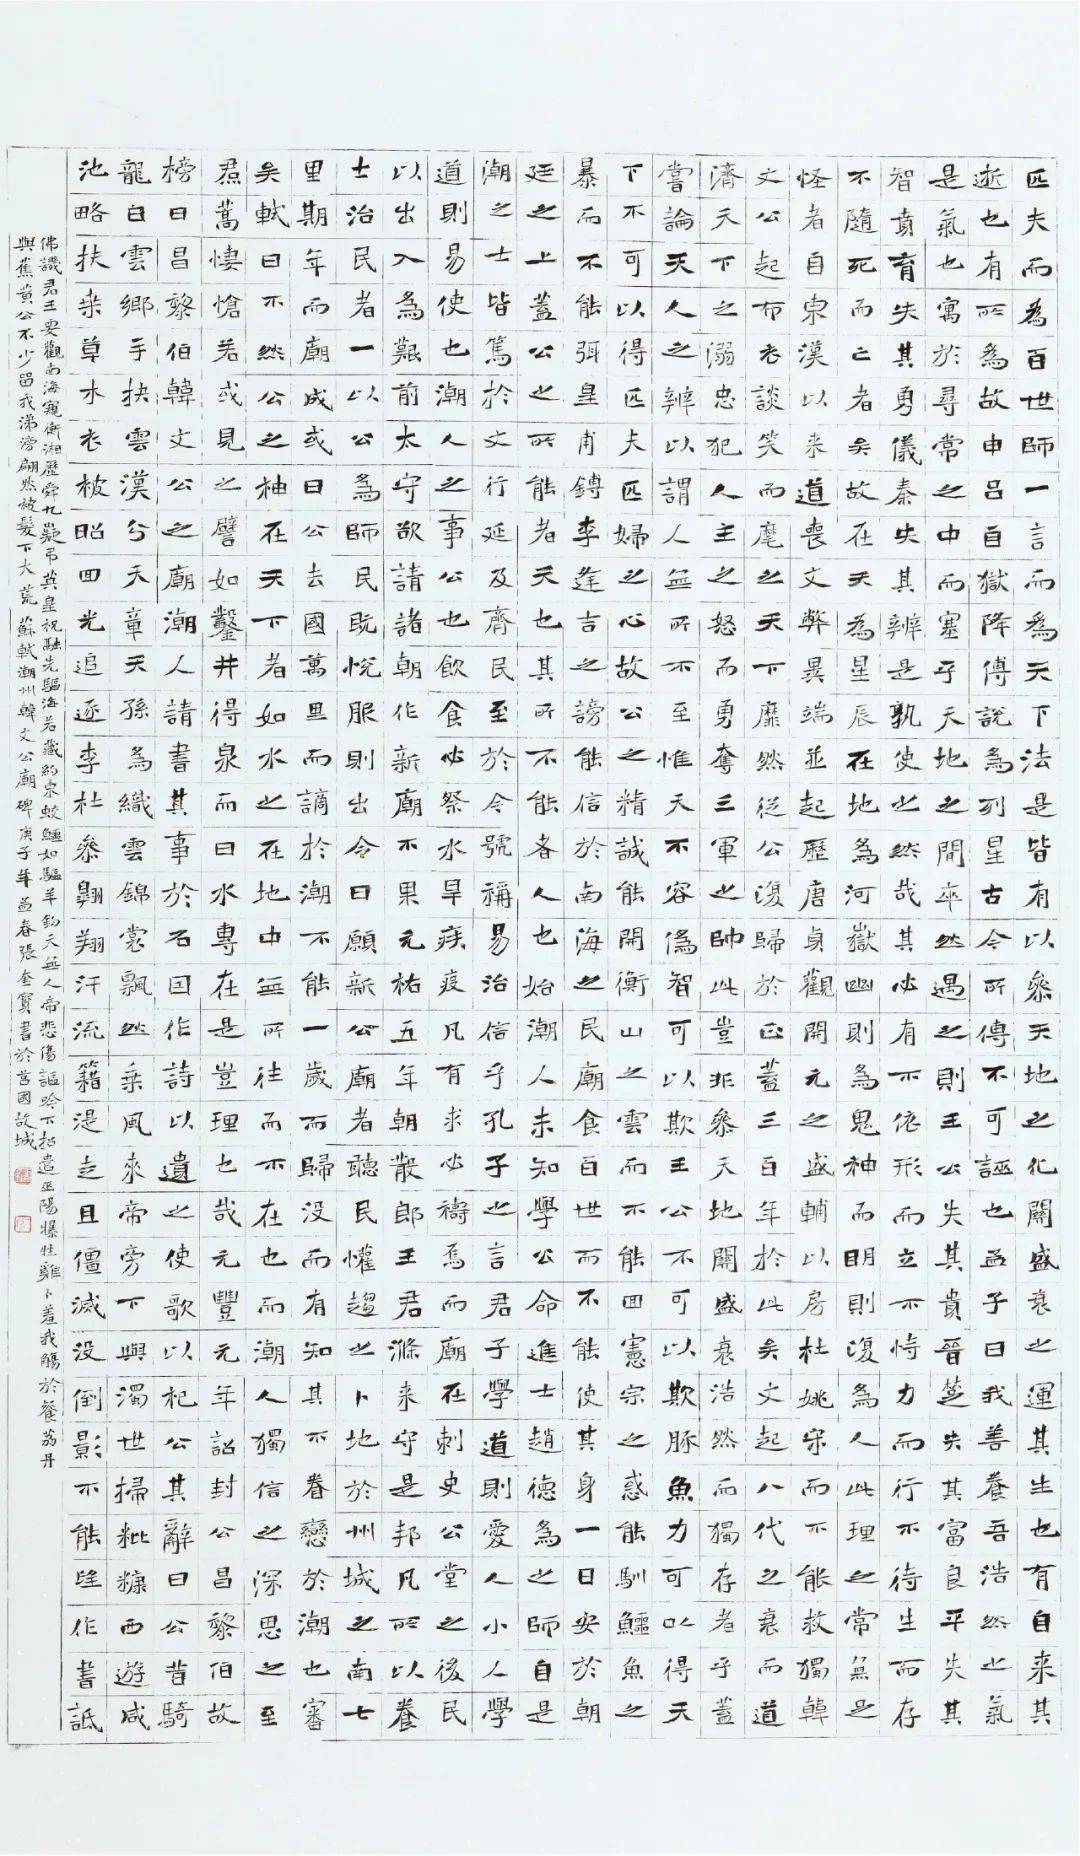 匹夫而為百世師一言而為天下法是皆有以參天地之化關盛衰之運其生也有自來其
逝也有所為故申呂自獄降傅說為列星古今所傳不可誣也孟子曰我善養吾浩然之氣
是氣也寓於尋常之中而塞乎天地之間卒然遇之則王公失其貴晉楚失其富良平失其
智賁育失其勇儀秦失其辨是孰使之然哉其必有不依形而立不恃力而行不待生而存
不隨死而亡者矣故在天為星辰在地為河嶽幽則為鬼神而明則復為人此理之常無足
怪者自東漢以來道喪文弊異端並起歷唐貞觀開元之盛輔以房杜姚宋而不能救獨韓
文公起布衣談笑而麾之天下靡然從公復歸於正蓋三百年於此矣文起八代之衰而道
濟天下之溺忠犯人主之怒而勇奪三軍之帥此豈非參天地關盛衰浩然而獨存者乎蓋
嘗論天人之辨以謂人無所不至惟天不容偽智可以欺王公不可以欺豚魚力可以得天
下不可以得匹夫匹婦之心故公之精誠能開衡山之雲而不能回憲宗之惑能馴鱷魚之
暴而不能弭皇甫鎛李逢吉之謗能信於南海之民廟食百世而不能使其身一日安於朝
廷之上蓋公之所能者天也其所不能者人也始潮人未知學公命進士趙德為之師自是
潮之士皆篤於文行延及齊民至於今號稱易治信乎孔子之言君子學道則愛人小人學
道則易使也潮人之事公也飲食必祭水旱疾疫凡有求必禱焉而廟在刺史公堂之後民
以出入為艱前太守欲請諸朝作新廟不果元祐五年朝散郎王君滌來守是邦凡所以養
士治民者一以公為師民既悅服則出令曰願新公廟者聽民懽趨之卜地於州城之南七
里期年而廟成或曰公去國萬里而謫於潮不能一歲而歸沒而有知其不眷戀於潮也審
矣軾曰不然公之神在天下者如水之在地中無所往而不在也而潮人獨信之深思之至
焄蒿悽愴若或見之譬如鑿井得泉而曰水專在是豈理也哉元豐元年詔封公昌黎伯故
榜曰昌黎伯韓文公之廟潮人請書其事於石因作詩以遺之使歌以祀公其辭曰公昔騎
龍白雲鄉手抉雲漢分天章天孫為織雲錦裳飄然乘風來帝旁下與濁世掃粃糠西遊咸
池略扶桑草木衣被昭回光追逐李杜參翱翔汗流籍湜走且僵滅沒倒影不能望作書詆
佛譏君王要觀南海窺衡湘歷舜九嶷弔英皇祝融先驅海若藏約束蛟鱷如驅羊鈞天無人帝悲傷謳吟下招遣巫陽犦牲雞卜羞我觴於餐荔丹
與蕉黃公不少留我涕滂翩然被髮下大荒 蘇軾潮州韓文公廟碑庚子年孟春張奎寶書於莒國故城